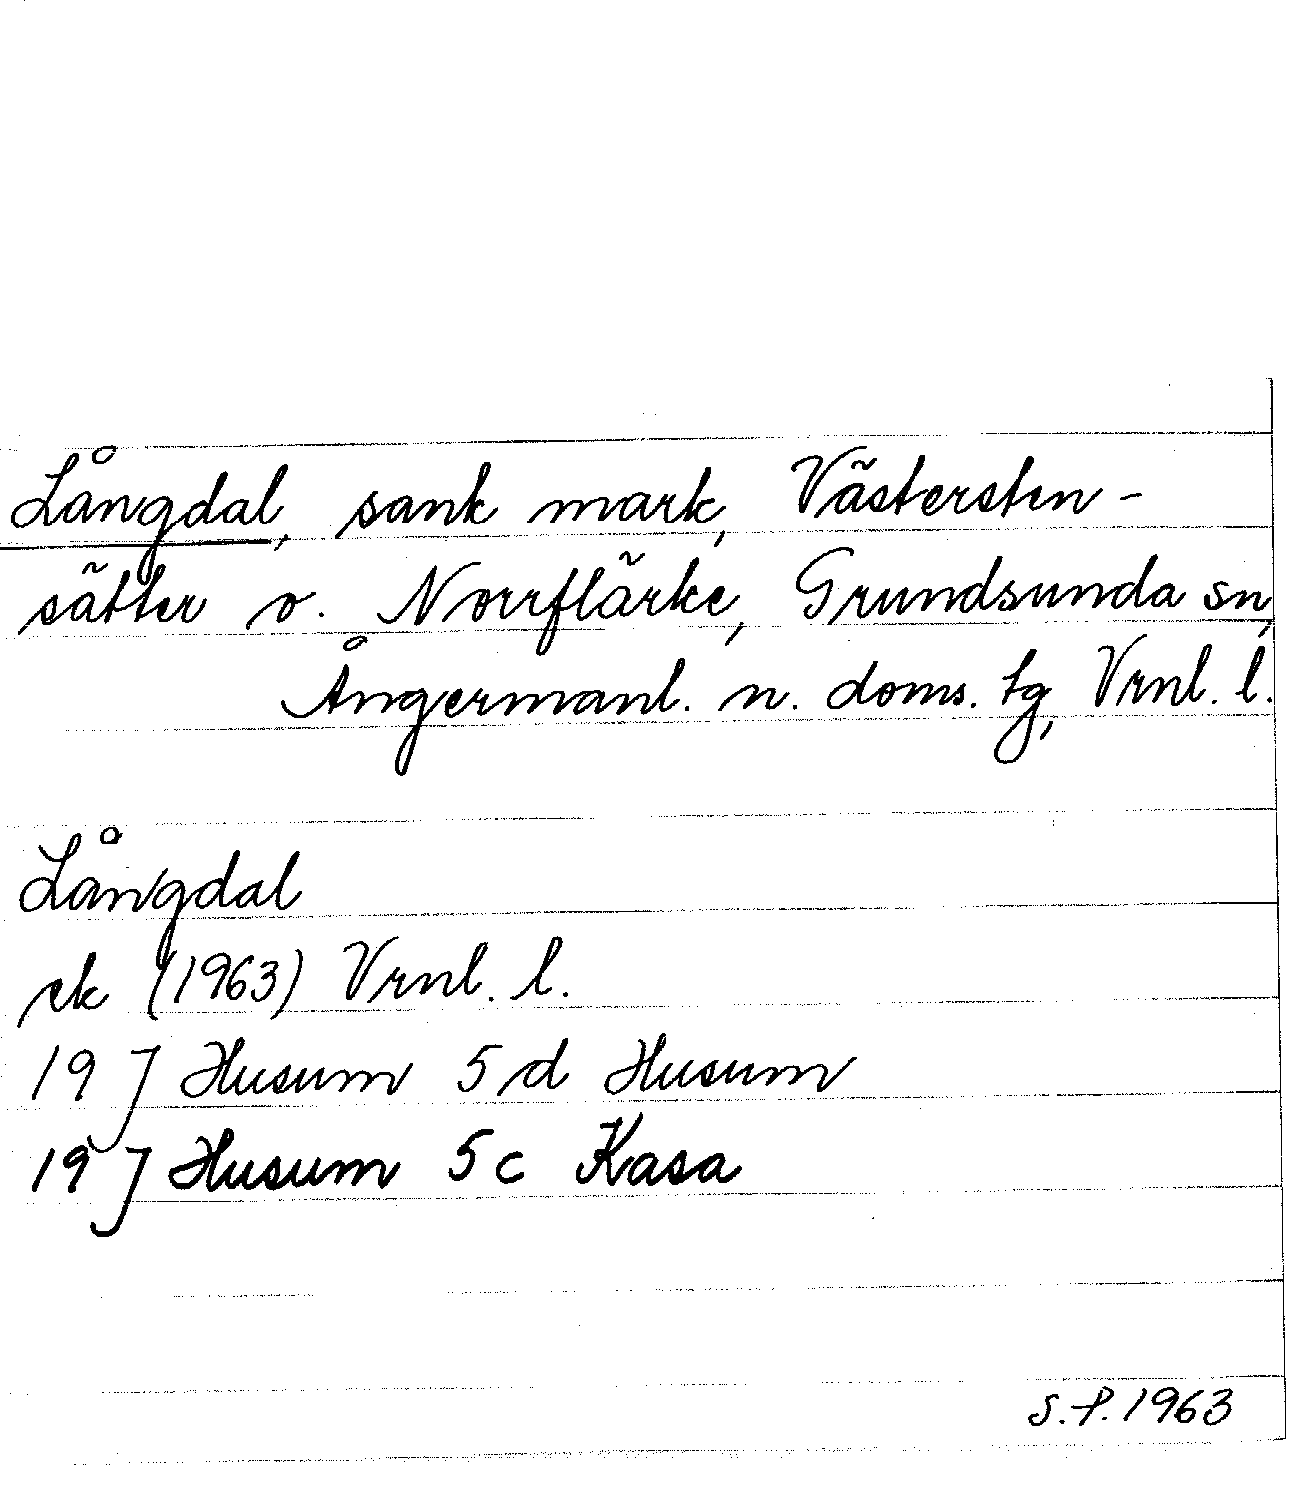 Långdal, sank mark, Västersten-
sätter o. Norrflärke, Grundsunda sn,
Ångermanl. n. doms. tg, Vrnl. l.
Långdal
ek (1963) Vrnl. l.
19 J Husum 5 d Husum
19 J Husum 5 c Kasa
S.P. 1963